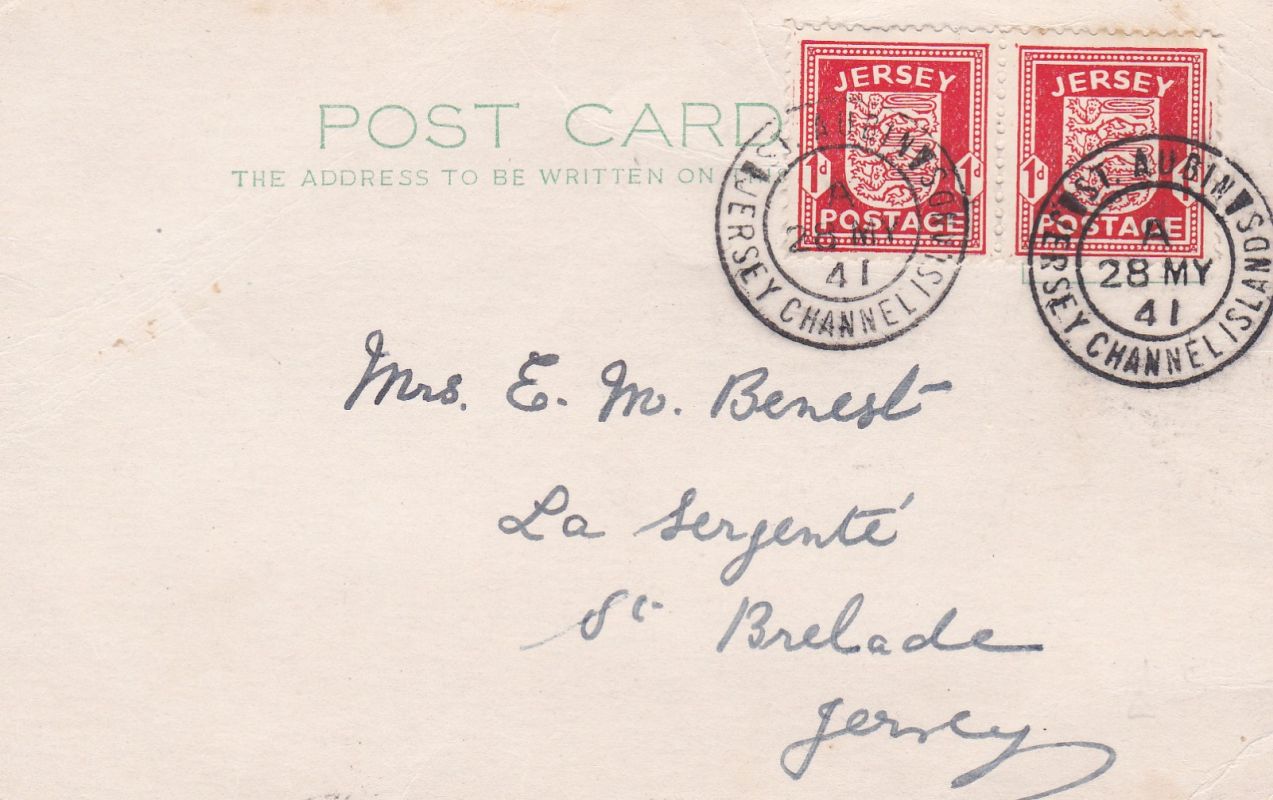 POST CARD
THE ADDRESS TO BE WRITTEN ON
JERSEY
1d 1d
POSTAGE
JERSEY
1d
POSTAGE
ST AUBIN'S
A
28 MY
41
JERSEY CHANNEL ISL
ST AUBIN'S
A
28 MY
41
JERSEY CHANNEL ISLANDS
Mrs. E. M. Benest
La Sergenté
St Brelade
Jersey